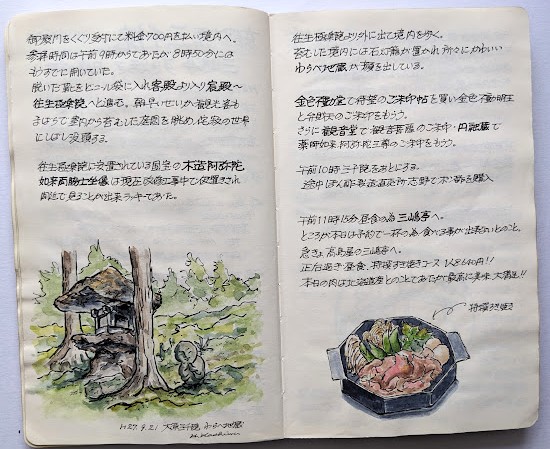 御殿門をくぐり受付にて料金700円を払い境内へ。
参拝時間は午前9時からであったが8時50分には
もうすでに開いていた。
脱いだ靴をビニール袋に入れ客殿より入り宸殿〜
往生極楽院へと進む。朝早いせいか観光客も
まばらで室内から苔むした庭園を眺め、侘寂の世界
にしばし没頭する。
往生極楽院に安置されている国宝の木造阿弥陀
如来両脇士坐像は現在
見ることが出来ラッキーであった。
H27.9.21 大原三千院 わらべ地蔵
往生極楽院より外に出て境内を歩く。
苔むした境内には石灯籠が置かれ所々にかわいい
わらべ地蔵が顔を出している。
金色不動堂で待望のご朱印帖を買い金色不動明王
と弁財天のご朱印をもらう。
さらに観音堂で観音菩薩のご朱印・円融蔵で
薬師如来、阿弥陀三尊のご朱印をもらう。
午前10時 三千院をあとにする。
途中ぽん酢製造直売所志野でポン酢を購入
午前11時15分 昼食の為 三嶋亭へ。
ところが本日は予約で一杯の為食べる事が出来ないとのこと。
急きょ高島屋の三嶋亭へ。
正台造き昼食、将攅すき焼きコース 1人8640円!!
本日の肉は北海道産とのことであたが最高に美味、大満足!!
すき焼き